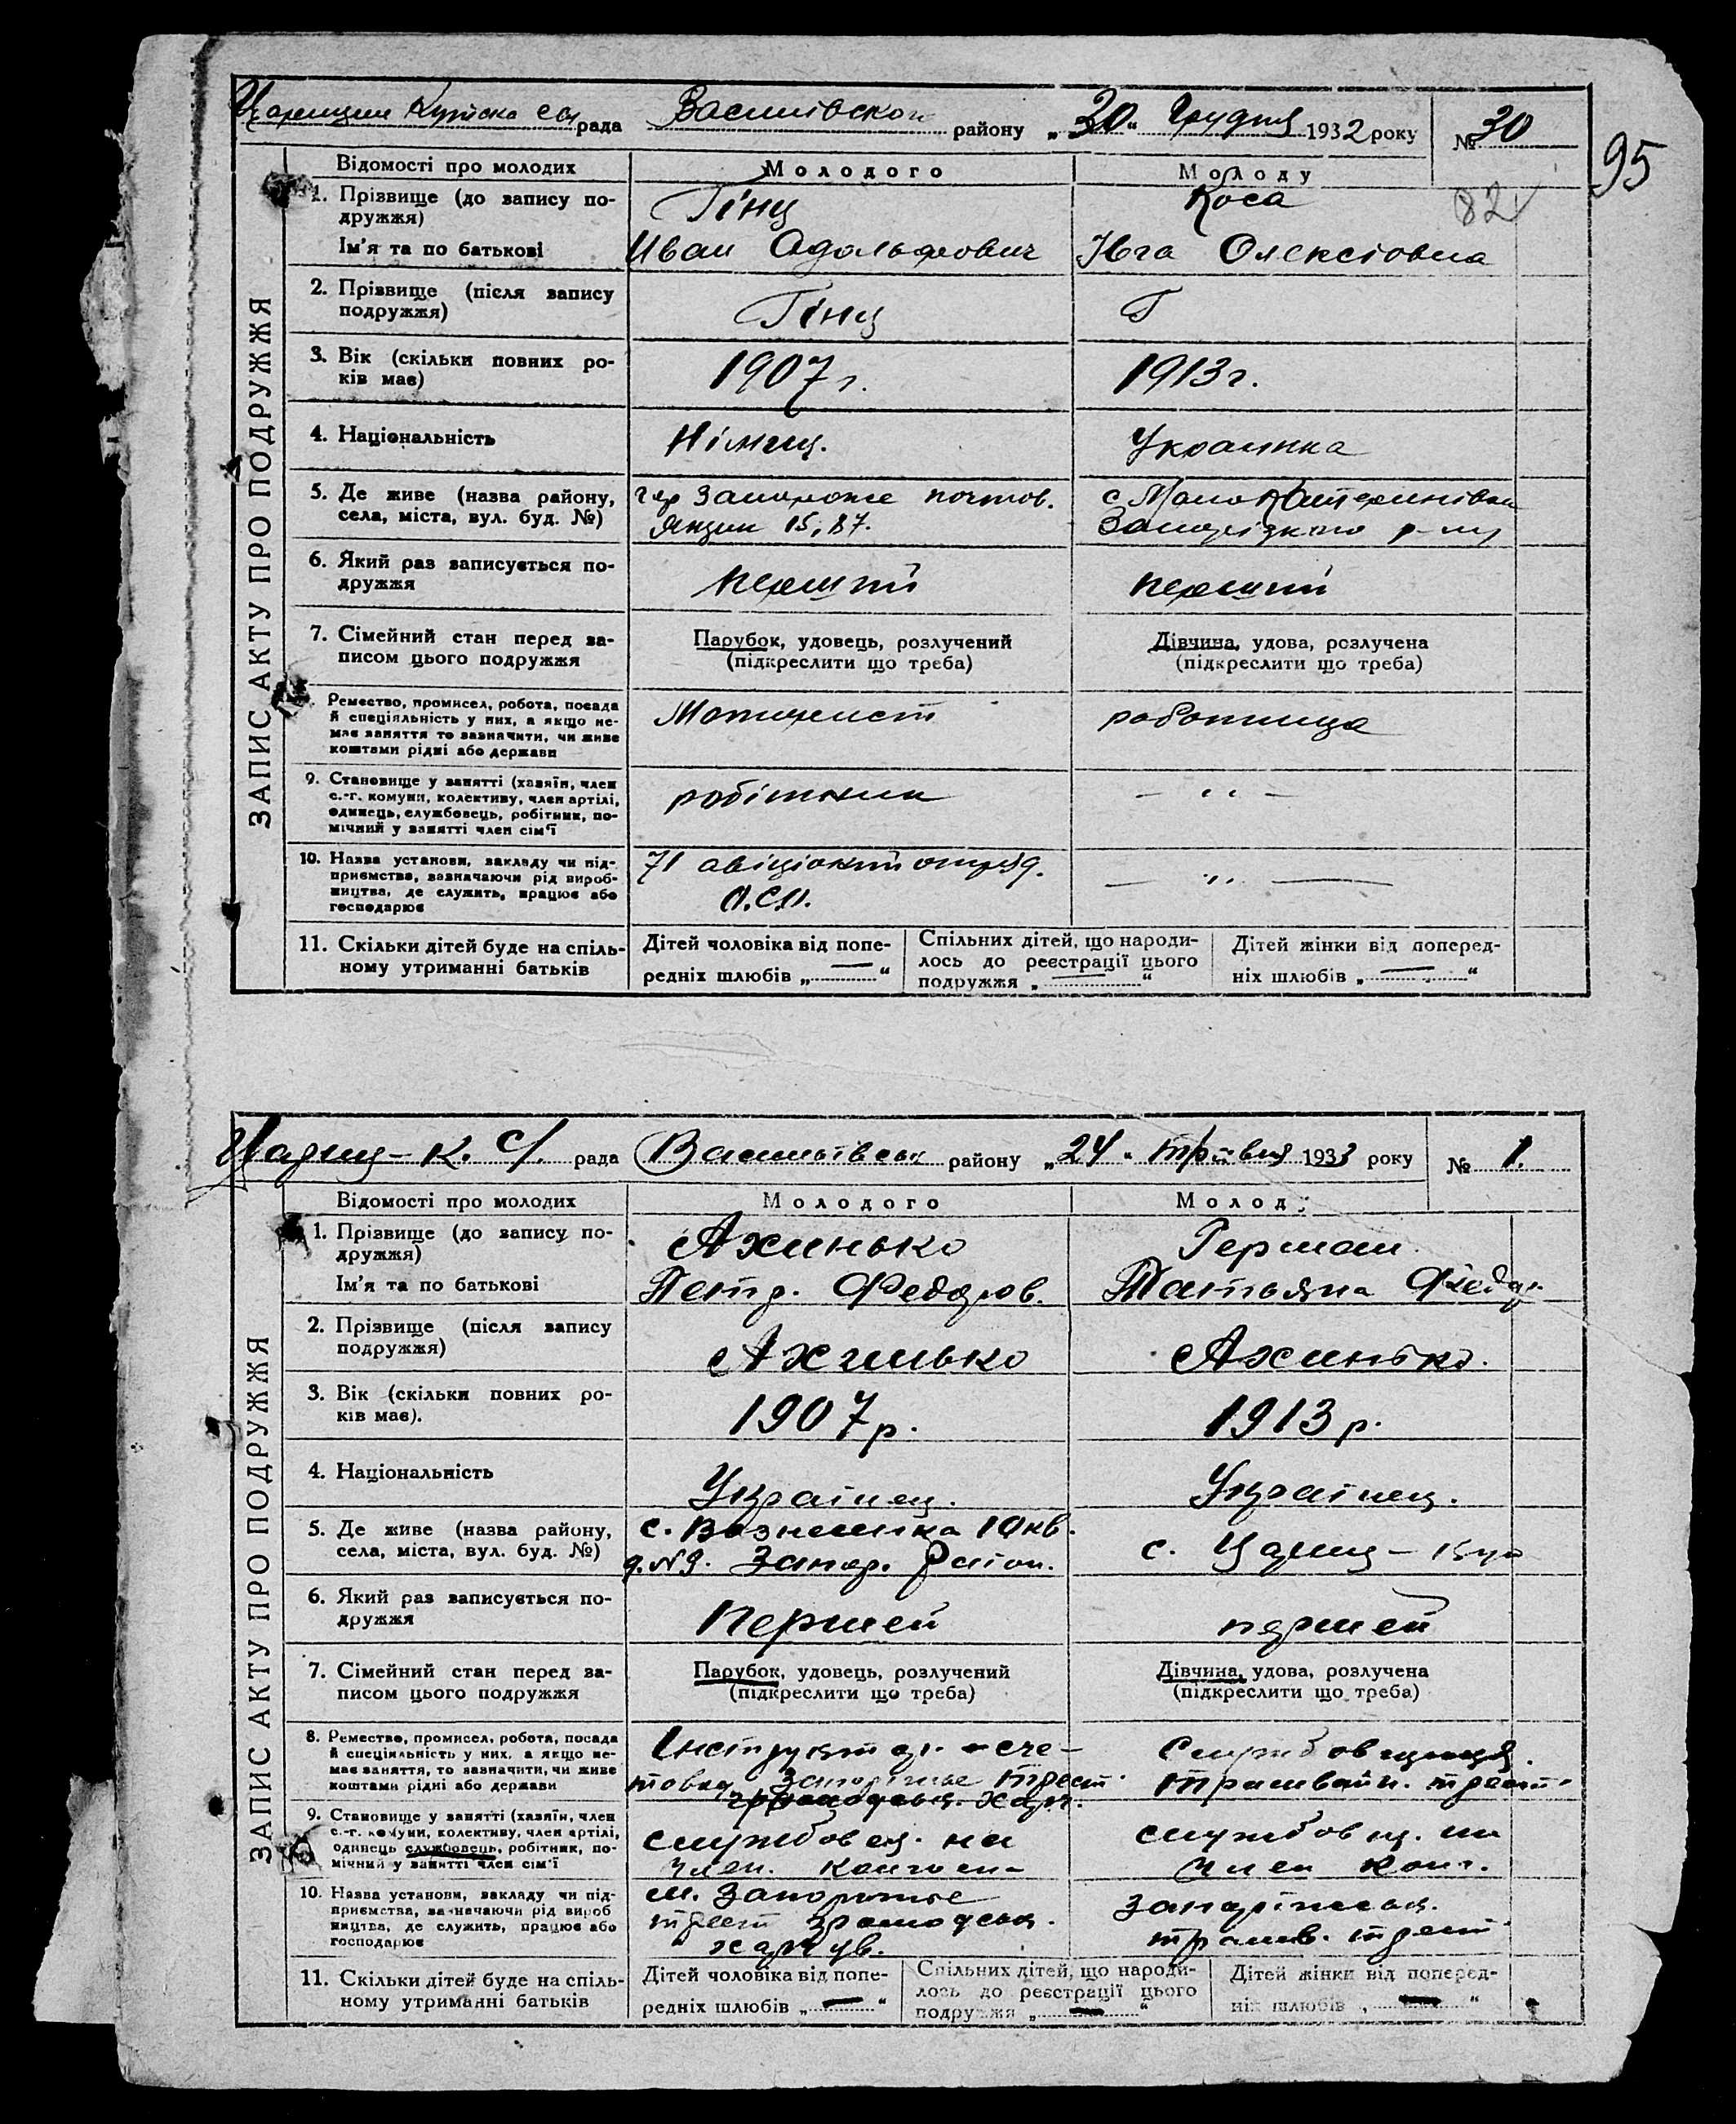 Царицин Кутska с/г рада Василівског району „30“ Грудня 1932 року № 30
95
Відомості про молодих Молодого Молоду
82
1. Прізвище (до запису по-
дружжя)
Гінц Коса
Ім'я та по батькові Иван Адольфович Ївга Олексіовна
2. Прізвище (після запису
подружжя)
Гінц Г
3. Вік (скільки повних ро-
ків має)
1907 г. 1913 г.
4. Національність Німец. Украинка
5. Де живе (назва району,
села, міста, вул. буд. №)
гор Запороже почтов. с. Мало Катеринівка
Ящик 15, 87. Запорізкого р-ну
6. Який раз записується по-
дружжя
перший перший
7. Сімейний стан перед за-
писом цього подружжя
Парубок, удовець, розлучений
(підкреслити що треба)
Дівчина, удова, розлучена
(підкреслити що треба)
Ремество, промисел, робота, посада
й спеціяльність у них, а якщо не-
має заняття то зазначити, чи живе
коштами рідні або держави
Моторист работница
9. Становище у занятті (хазяїн, член
с.-г. комуни, колективу, член артілі,
одинець, службовець, робітник, по-
мічний у занятті член сім'ї
робітник — „ —
10. Назва установи, закладу чи під-
приємства, зазначаючи рід вироб-
ництва, де служить, працює або
господарює
71 авіціоний отряд. — „ —
11. Скільки дітей буде на спіль-
ному утриманні батьків
Дітей чоловіка від попе-
редніх шлюбів „—“
Спільних дітей, що народи-
лось до реєстрації цього
подружжя „—“
Дітей жінки від поперед-
ніх шлюбів „—“
ЗАПИС АКТУ ПРО ПОДРУЖЖЯ
Цариц-К. С/. рада Васильівськ району „24“ травня 1933 року № 1.
Відомості про молодих Молодого Молоду
1. Прізвище (до запису по-
дружжя)
Ахинько Герман
Ім'я та по батькові Петр. Федоров. Татьяна Федор.
2. Прізвище (після запису
подружжя)
Ахинько Ахинько.
3. Вік (скільки повних ро-
ків має).
1907 р. 1913 р.
4. Національність Українец. Українец.
5. Де живе (назва району,
села, міста, вул. буд. №)
с. Вознесенка 10 кв. с. Цариц-Кут
д. №9. Запор. район.
6. Який раз записується по-
дружжя
Першей першей
7. Сімейний стан перед за-
писом цього подружжя
Парубок, удовець, розлучений
(підкреслити що треба)
Дівчина, удова, розлучена
(підкреслити що треба)
8. Ремество, промисел, робота, посада
й спеціяльність у них, а якщо не-
має заняття, то зазначити, чи живе
коштами рідні або держави
Інструктор. - сче- Службовица.
товод Запоріжье трест трамвайн. трест.
громодськ. харч.
9. Становище у занятті (хазяїн, член
с.-г. комуни, колективу, член артілі,
одинець службовець, робітник, по-
мічний у занятті член сім'ї
службовец. на службовец. на
10. Назва установи, закладу чи під-
приємства, зазначаючи рід вироб
ництва, де служить, працює або
господарює
м. Запоріжье Запоріжськ.
трест громодськ. трамв. трест
харчув.
11. Скільки дітей буде на спіль-
ному утриманні батьків
Дітей чоловіка від попе-
редніх шлюбів „—“
Спільних дітей, що народи-
лось до реєстрації цього
подружжя „—“
Дітей жінки від поперед-
ніх шлюбів „—“
ЗАПИС АКТУ ПРО ПОДРУЖЖЯ